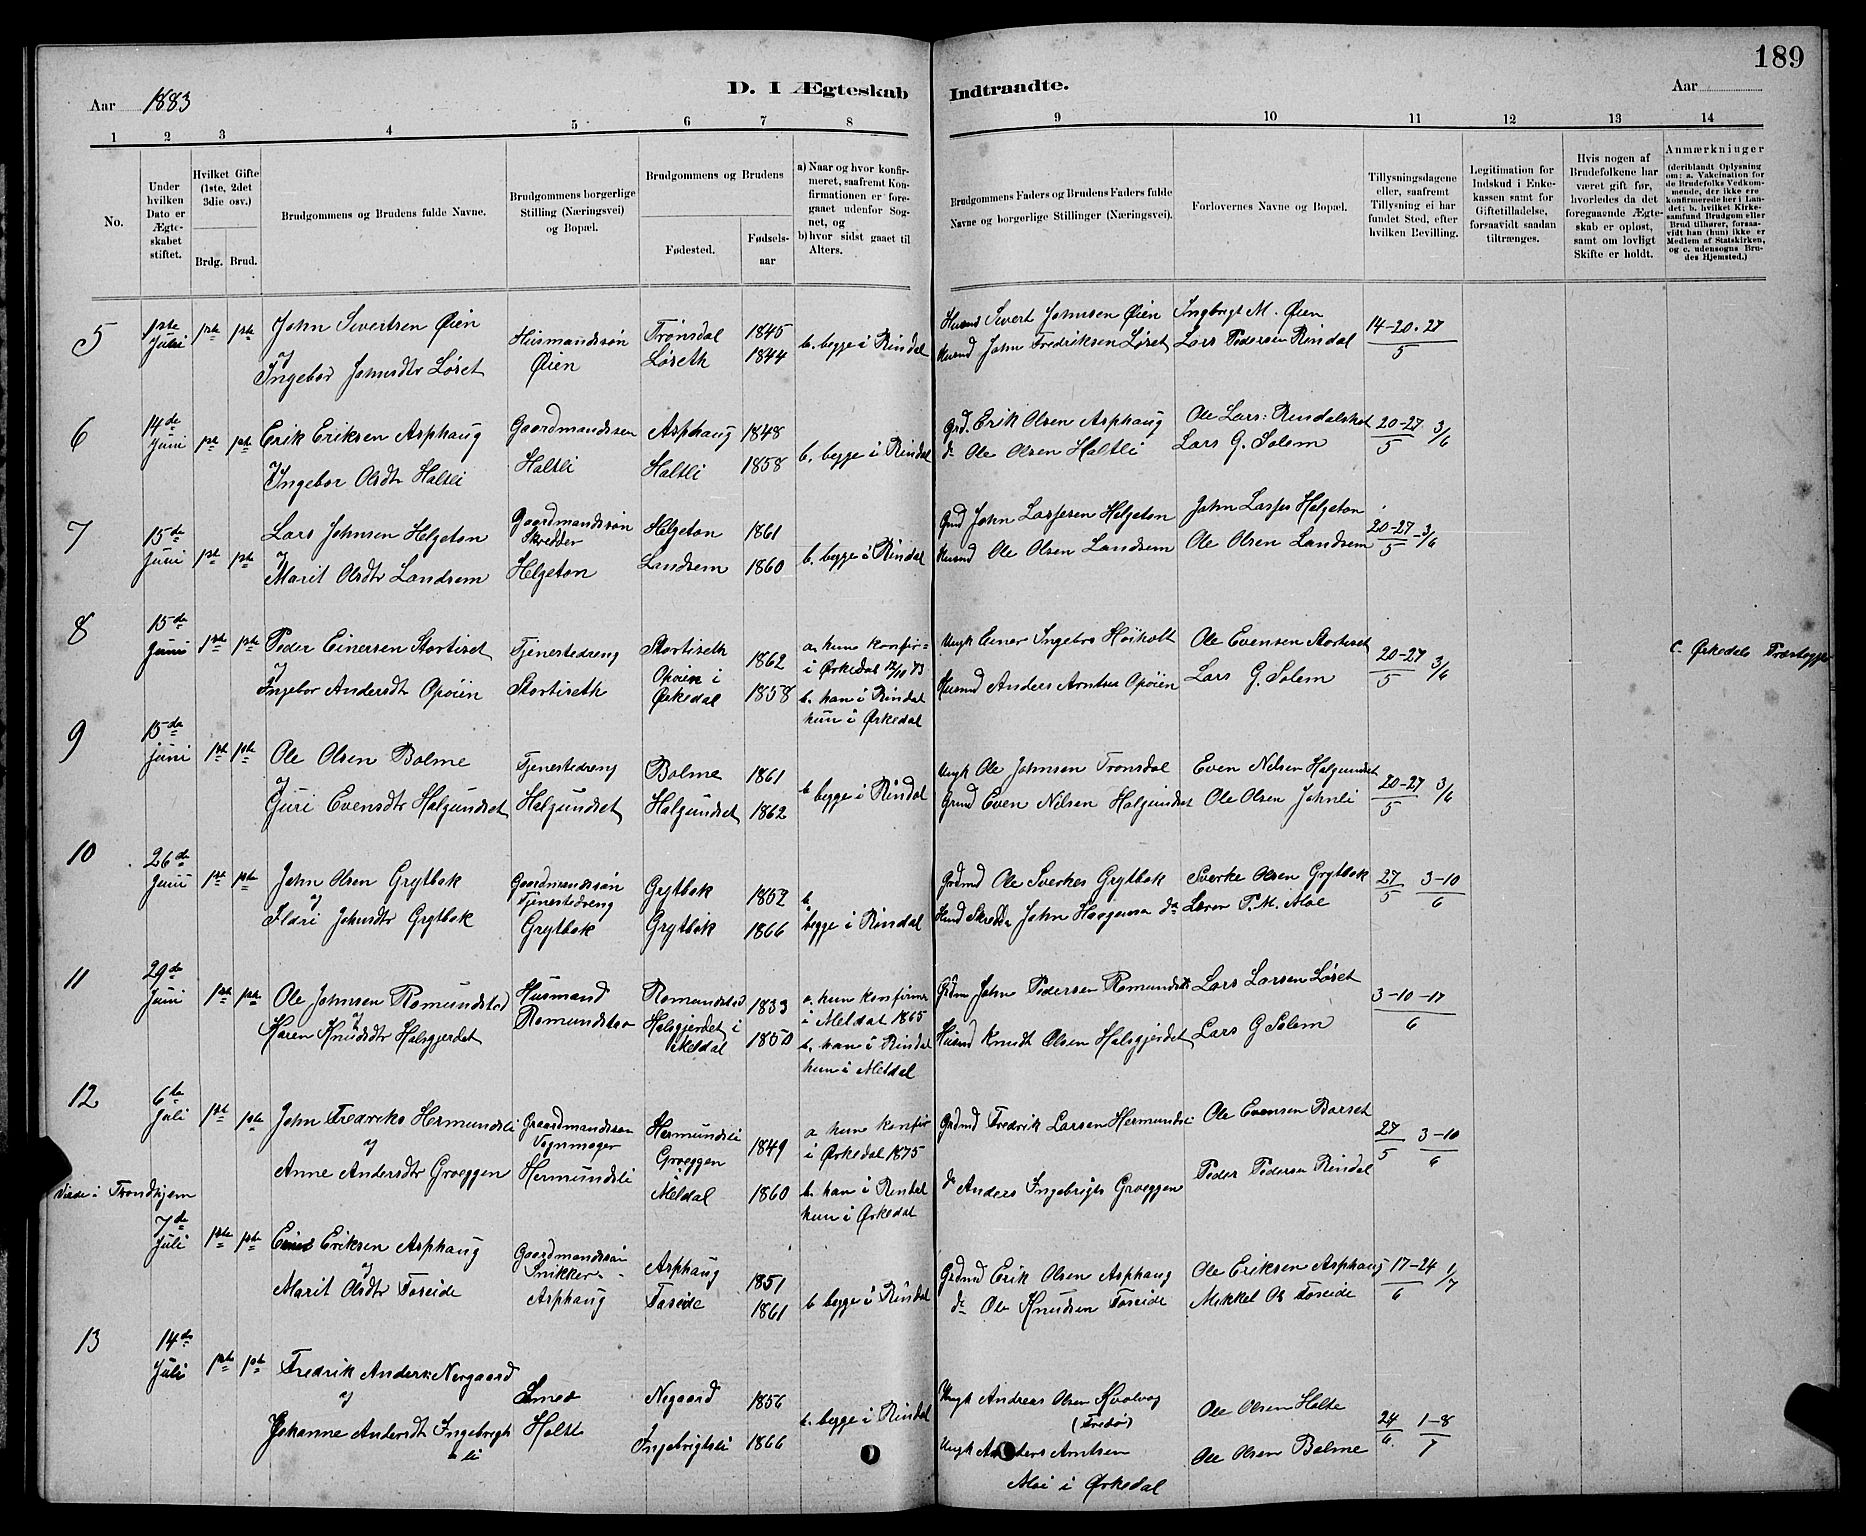 189
D. I Ægteskab Indtraadte.
Aar 1883
Aar
1 2 3 4 5 6 7 8 9 10 11 12 13 14
No.
Under hvilken Dato er Ægteskabet stiftet.
Hvilket Gifte (1ste, 2det 3die osv.)
Brdg. Brud.
Brudgommens og Brudens fulde Navne.
Brudgommens borgerlige Stilling (Næringsvei) og Bopæl.
Brudgommens og Brudens
Fødested.
Fødsels-aar
a) Naar og hvor konfirmeret, saafremt Konfirmationen er foregaaet udenfor Sognet, og
b) hvor sidst gaaet til Alters.
Brudgommens Faders og Brudens Faders fulde Navne og borgerlige Stillinger (Næringsvei).
Forlovernes Navne og Bopæl.
Tillysningsdagene eller, saafremt Tillysning ei har fundet Sted, efter hvilken Bevilling.
Legitimation for Indskud i Enkekassen samt for Giftetilladelse, forsaavidt saadan tiltrænges.
Hvis nogen af Brudefolkene har været gift før, hvorledes da det foregaaende Ægteskab er opløst, samt om lovligt Skifte er holdt.
Anmærkninger (deriblandt Oplysning om: a. Vakcination for de Brudefolks Vedkommende, der ikke ere konfirmerede her i Landet; b. hvilket Kirkesamfund Brudgom eller Brud tilhører, forsaavidt han (hun) ikke er Medlem af Statskirken, og c. udensogns Brudes Hjemsted.)
5 1ste Juli 1ste 1ste John Sivertsen Øien Husmandssøn Trønsdal 1845 b. begge i Rindal Husmd Sivert Johnsen Øien Ingbrigt M. Øien 14-20-27
og Ingebor Johnsdtr Løset Øien Løseth 1844 Husmd John Fredriksen Løset Lars Pedersen Rindal 5
6 14de Juni 1ste 1ste Erik Eriksen Asphaug Gaardmandssøn Asphaug 1848 b. begge i Rindal Grd. Erik Olsen Asphaug Ole Lars: Rindalshol 20-27 3/6
og Ingebor Olsdtr Haltli Haltli Haltli 1858 do Ole Olsen Haltli Lars G. Solem 5
7 15de Juni 1ste 1ste Lars Johnsen Helgeton Gaardmandssøn Skredder Helgeton 1861 b. begge i Rindal Grmd John Larssen Helgeton John Larsen Helgeton 20-27-3/6
og Marit Olsdtr Landsem Helgeton Landsem 1860 Husmd Ole Olsen Landsem Ole Olsen Landsem 5
8 15de Juni 1ste 1ste Peder Einersen Stortiset Tjenestedreng Stortiseth 1862 a. hun konfir- i Ørkedal 12/10 73 Ungk Einer Ingebrs Høiholt Ole Evensen Stortiset 20-27 3/6 c. Ørkedals Præstegjeld
og Ingebor Andersdt Opøien Stortiseth Opøien i Ørkedal 1858 b. han i Rindal hun i Ørkedal Husmd Anders Arntsen Opøien Lars G. Solem 5
9 15de Juni 1ste 1ste Ole Olsen Bolme Tjenestedreng Bolme 1861 b begge i Rindal Ungk Ole Johnsen Tronsdal Even Nilsen Halgundset 20-27 3/6
og Guri Evensdtr Halgundset Halgundset Halgundset 1862 Grmd Even Nilsen Halgundset Ole Olsen Jahnli 5
10 26de Juni 1ste 1ste John Olsen Grytbak Gaardmandssøn Tjenestedreng Grytbak 1852 b. Grdmd Ole Sverkes Grytbak Sverke Olsen Grytbak 27/5 3-10
og Ildri Johnsdtr Grytbak Grytbak Grytbak 1866 begge i Rindal Husmd Skrdd John Haagensn do Lærer P. M. Moe 6
11 29de Juni 1ste 1ste Ole Johnsen Romundstad Husmand Romundstad 1833 a. hun konfirm i Meldal 1865 Grdm John Pedersen Romundst Lars Larsen Løset 3-10-17
og Karen Knudsdtr Halsgjerdet Romundstad Halsgjerdet i Meldal 1850 b. han i Rindal hun i Meldal Husmd Knudt Olsen Halsgjerdet Lars G Solem 6
12 6te Juli 1ste 1ste John Fredriks Hermundsli Gaardmandssøn Vognmager Hermundsli 1849 a. hun konfir i Ørkedal 1875 Grdmd Fredrik Larsen Hermundsli Ole Evensen Barset 27/5 3-10
og Anne Andersdtr Groeggen Hermundsli Groeggen i Meldal 1860 b. han i Rindal hun i Ørkedal do Anders Ingebrigts Groeggen Peder Pedersen Rindal 6
viede i Trondhjem
7de Juli 1ste 1ste Einar Eriksen Asphaug Gaardmandssøn Snikker Asphaug 1851 b begge i Rindal Grdmd Erik Olsen Asphaug Ole Eriksen Asphaug 17-24 1/7
og Marit Olsdtr Foseide Asphaug Foseide 1861 do Ole Knudsen Foseide Mikkel Os Foseide 6
13 14de Juli 1ste 1ste Fredrik Anders: Nergaard Smed Negaard 1856 b. begge i Rindal Ungk Andreas Olsen Kvalvag (Fredø) Ole Olsen Halte 24/6 1-8
og Johanne Andersdt Ingebrigtsli Holte Ingebrigtsli 1866 Ungk Anders Arntsen Moi i Ørkedal Ole Olsen Bolme 7